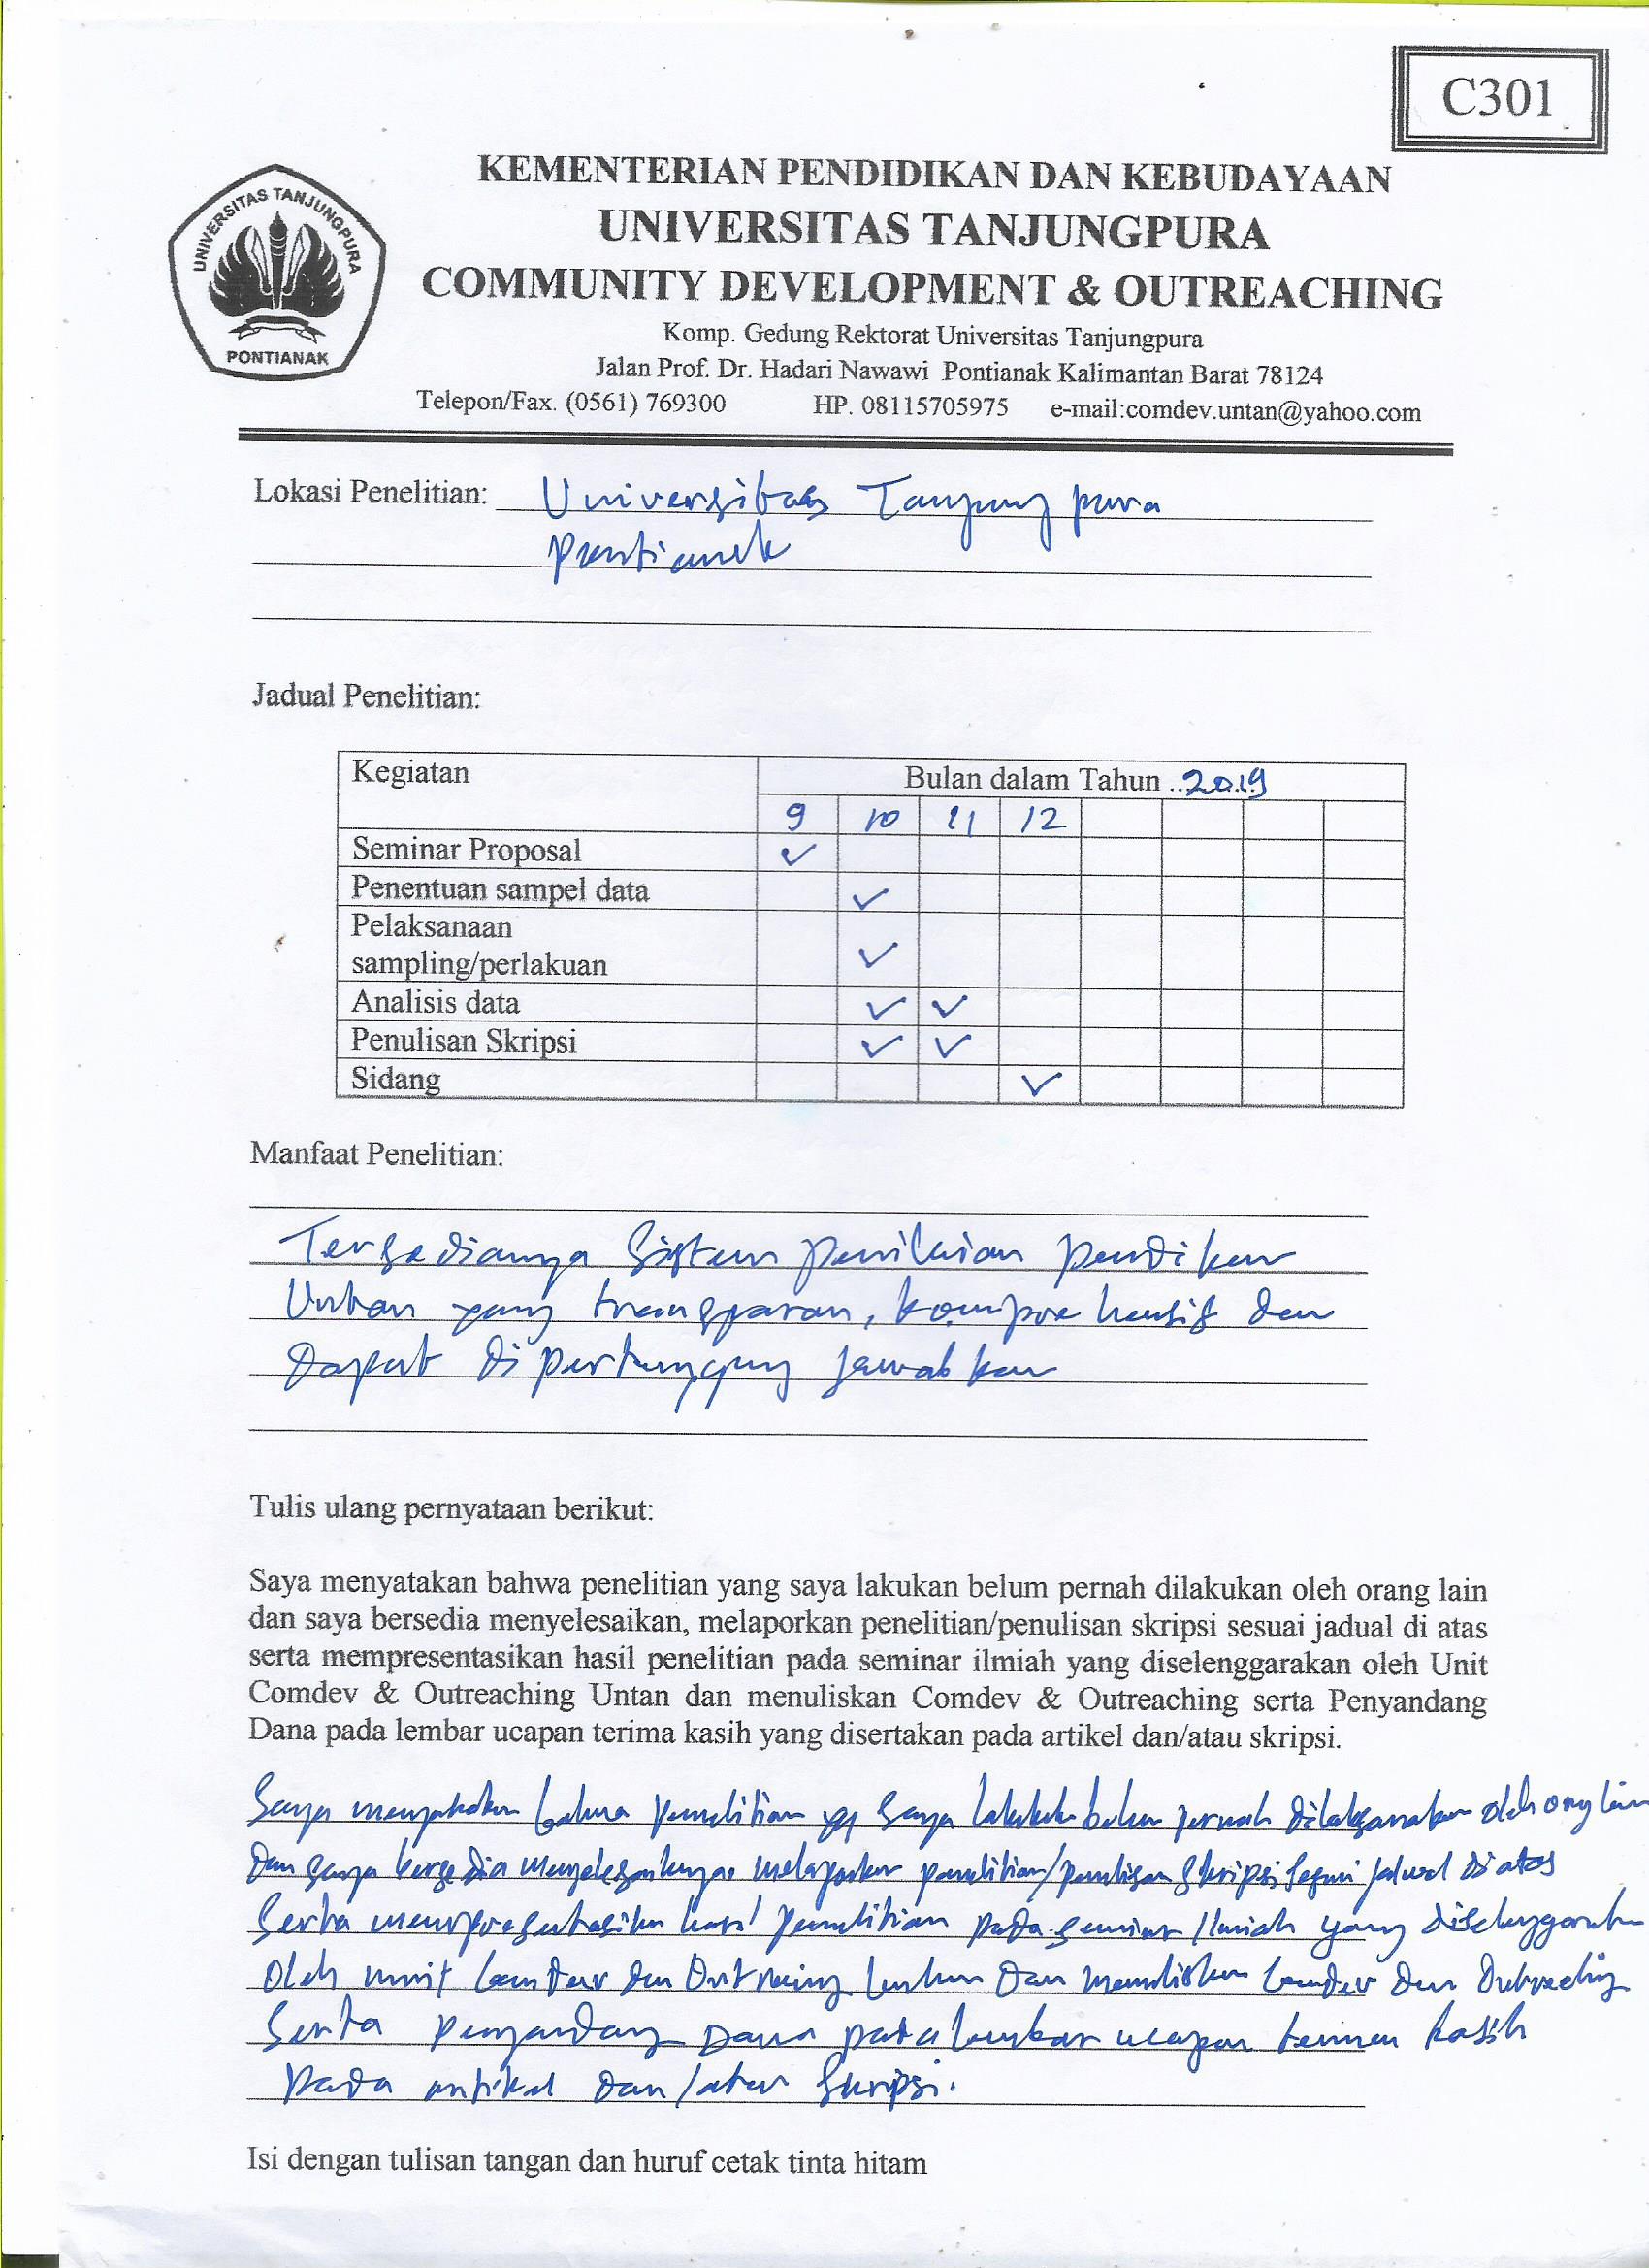 C301
KEMENTERIAN PENDIDIKAN DAN KEBUDAYAAN
UNIVERSITAS TANJUNGPURA
COMMUNITY DEVELOPMENT & OUTREACHING
UNIVERSITAS TANJUNGPURA
PONTIANAK
Komp. Gedung Rektorat Universitas Tanjungpura
Jalan Prof. Dr. Hadari Nawawi Pontianak Kalimantan Barat 78124
Telepon/Fax. (0561) 769300 HP. 08115705975 e-mail:comdev.untan@yahoo.com
Lokasi Penelitian: Universitas Tanjungpura
Pontianak
Jadual Penelitian:
Kegiatan Bulan dalam Tahun ..2019
9 10 11 12
Seminar Proposal ✓
Penentuan sampel data ✓
Pelaksanaan
sampling/perlakuan ✓
Analisis data ✓ ✓
Penulisan Skripsi ✓ ✓
Sidang ✓
Manfaat Penelitian:
Tersedianya Sistem penilaian pendikan
Untan yang transparan, komprehensif dan
Dapat dipertanggung jawabkan
Tulis ulang pernyataan berikut:
Saya menyatakan bahwa penelitian yang saya lakukan belum pernah dilakukan oleh orang lain
dan saya bersedia menyelesaikan, melaporkan penelitian/penulisan skripsi sesuai jadual di atas
serta mempresentasikan hasil penelitian pada seminar ilmiah yang diselenggarakan oleh Unit
Comdev & Outreaching Untan dan menuliskan Comdev & Outreaching serta Penyandang
Dana pada lembar ucapan terima kasih yang disertakan pada artikel dan/atau skripsi.
Saya menyatakan bahwa penelitian yg saya lakukan belum pernah dilaksanakan oleh orang lain
dan saya bersedia melaporkan penelitian/penulisan skripsi sesuai jadwal di atas
serta mempresentasikan hasil penelitian pada seminar Ilmiah yang diselenggarakan
oleh unit Comdev dan Outreaching Untan dan menuliskan Comdev dan Outreaching
Serta penyandang Dana pada lembar ucapan terima kasih
pada artikel dan/atau Skripsi.
Isi dengan tulisan tangan dan huruf cetak tinta hitam